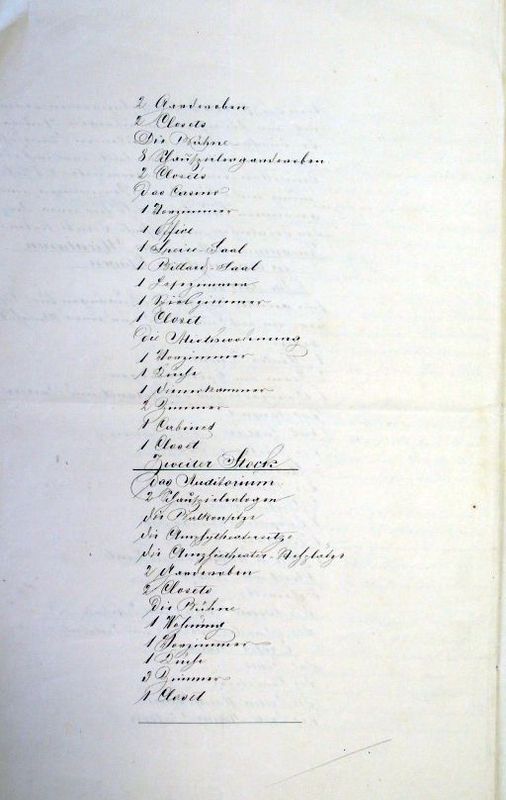 2 Garderoben
2 Closets
Die Bühne
8 Schauspielergarderoben
2 Closets
Das Casino
1 Vorzimmer
1 Office
1 Speise-Saal
1 Billard-Saal
1 Lesezimmer
1 Spielzimmer
1 Closet
die Miethwohnung
1 Vorzimmer
1 Küche
1 Dienerkammer
2 Zimmer
1 Cabinet
1 Closet
Zweiter Stock
Das Auditorium
2 Schauspielerlogen
die Balkonsitze
die Amphitheatersitze
die Amphitheater-Stehplätze
2 Garderoben
2 Closets
Die Bühne
1 Wohnung
1 Vorzimmer
1 Küche
3 Zimmer
1 Closet